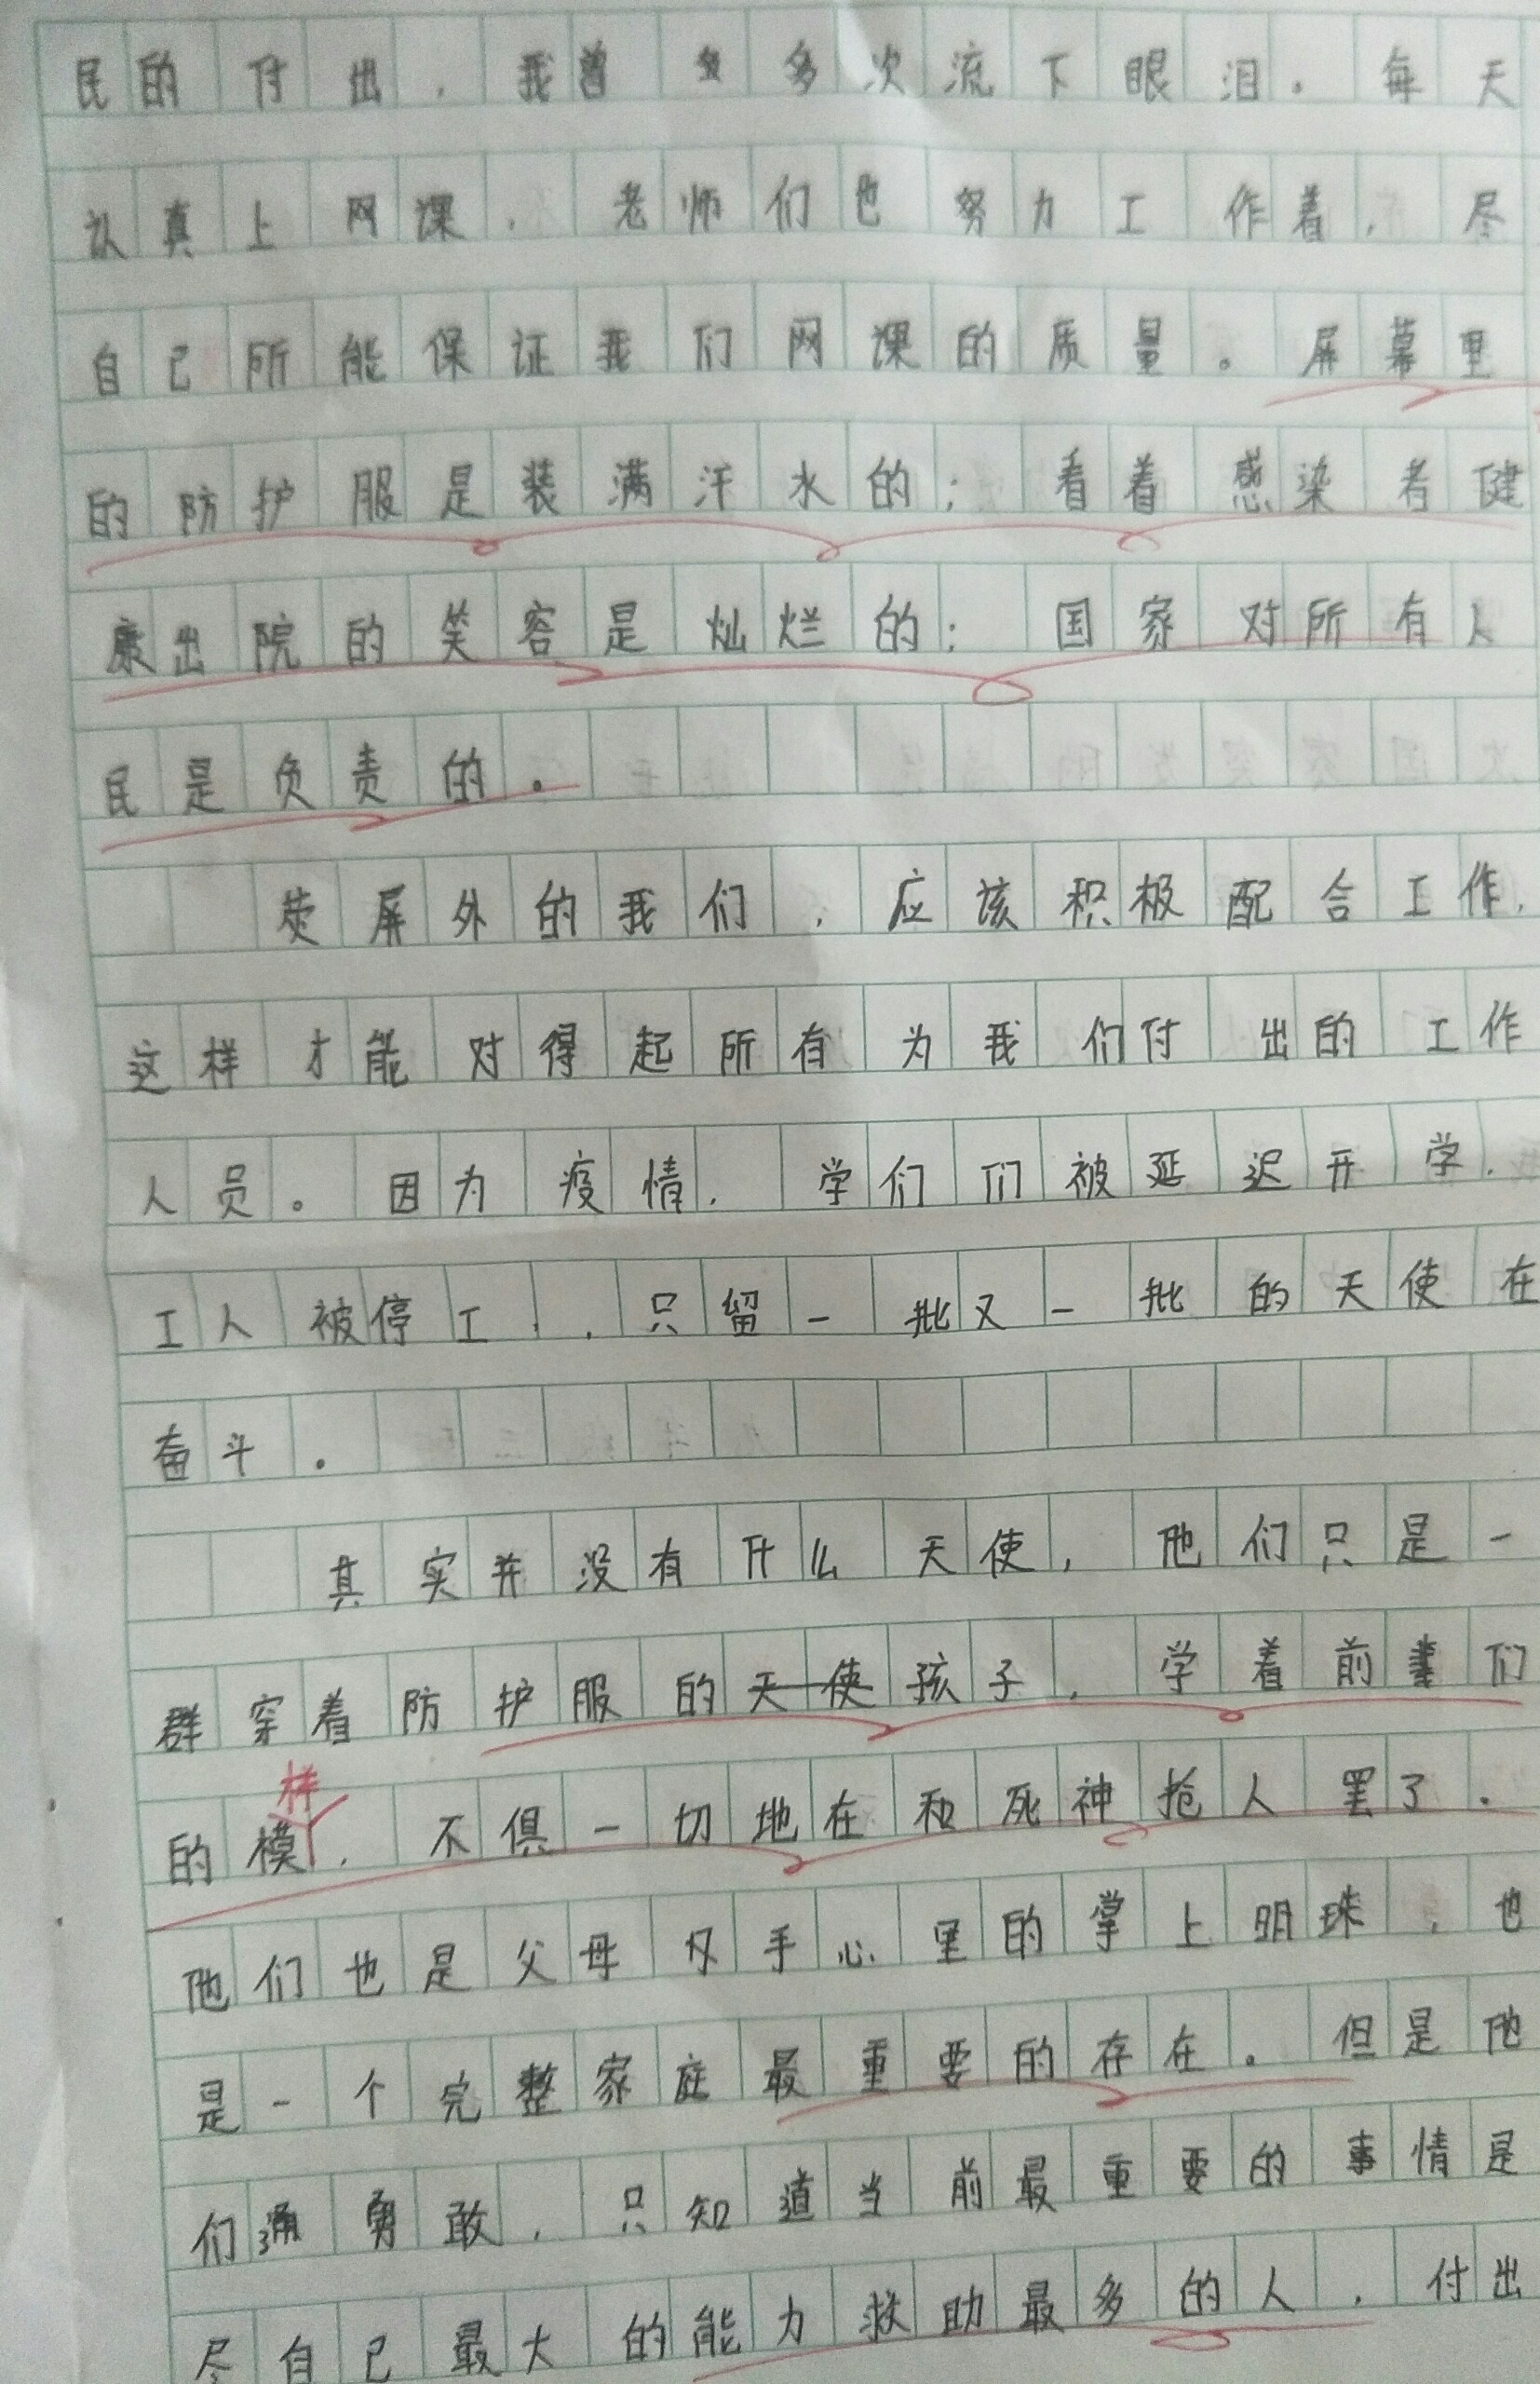 民的付出，我曾多次流下眼泪。每天
认真上网课，老师们也努力工作着，尽
自己所能保证我们网课的质量。屏幕里
的防护服是装满汗水的；看着感染者健
康出院的笑容是灿烂的；国家对所有人
民是负责的。
荧屏外的我们，应该积极配合工作，
这样才能对得起所有为我们付出的工作
人员。因为疫情，学们们被延迟开学，
工人被停工，，只留一批又一批的天使在
奋斗。
其实并没有什么天使，他们只是一
群穿着防护服的天使孩子，学着前辈们
样
的模，不俱一切地在和死神抢人罢了。
他们也是父母手心里的掌上明珠，也
是一个完整家庭最重要的存在。但是他
们勇敢，只知道当前最重要的事情是
尽自己最大的能力救助最多的人，付出